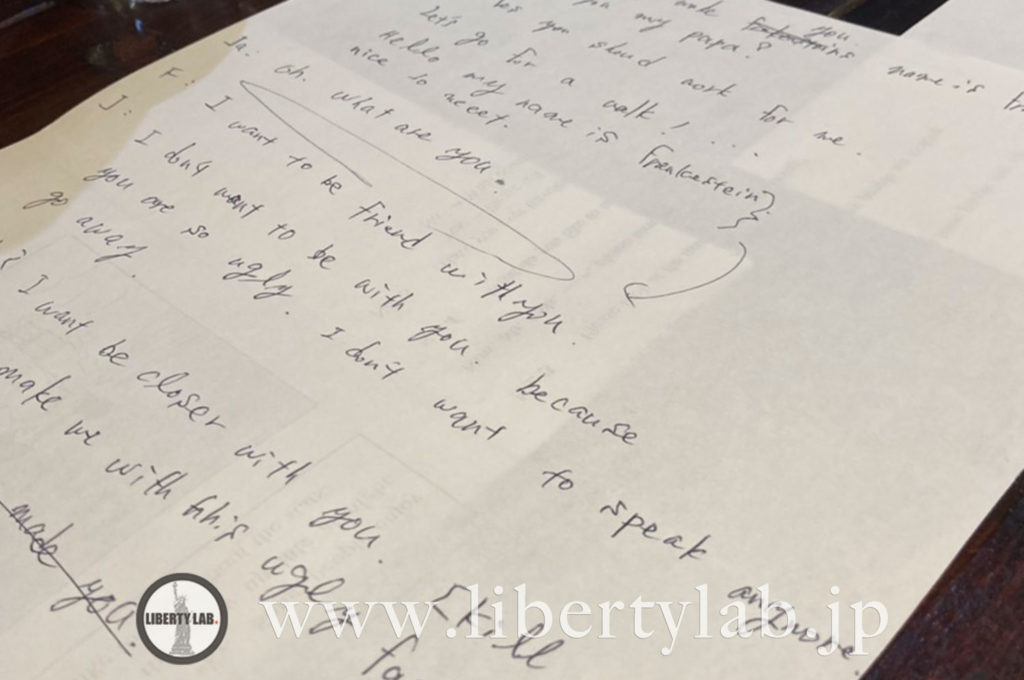 you.
my papa? name is
you should work for me.
Let's go for a walk! ...
Hello my name is Frenkestein}
nice to meet.
Ja: oh. what are you.
F: I want to be friend with you.
J: I don't want to be with you. because
you are so ugly. I don't want to speak anymore.
go away.
I want be closer with you. [kill
make me with this ugly
made you.
LIBERTY LAB.
www.libertylab.jp